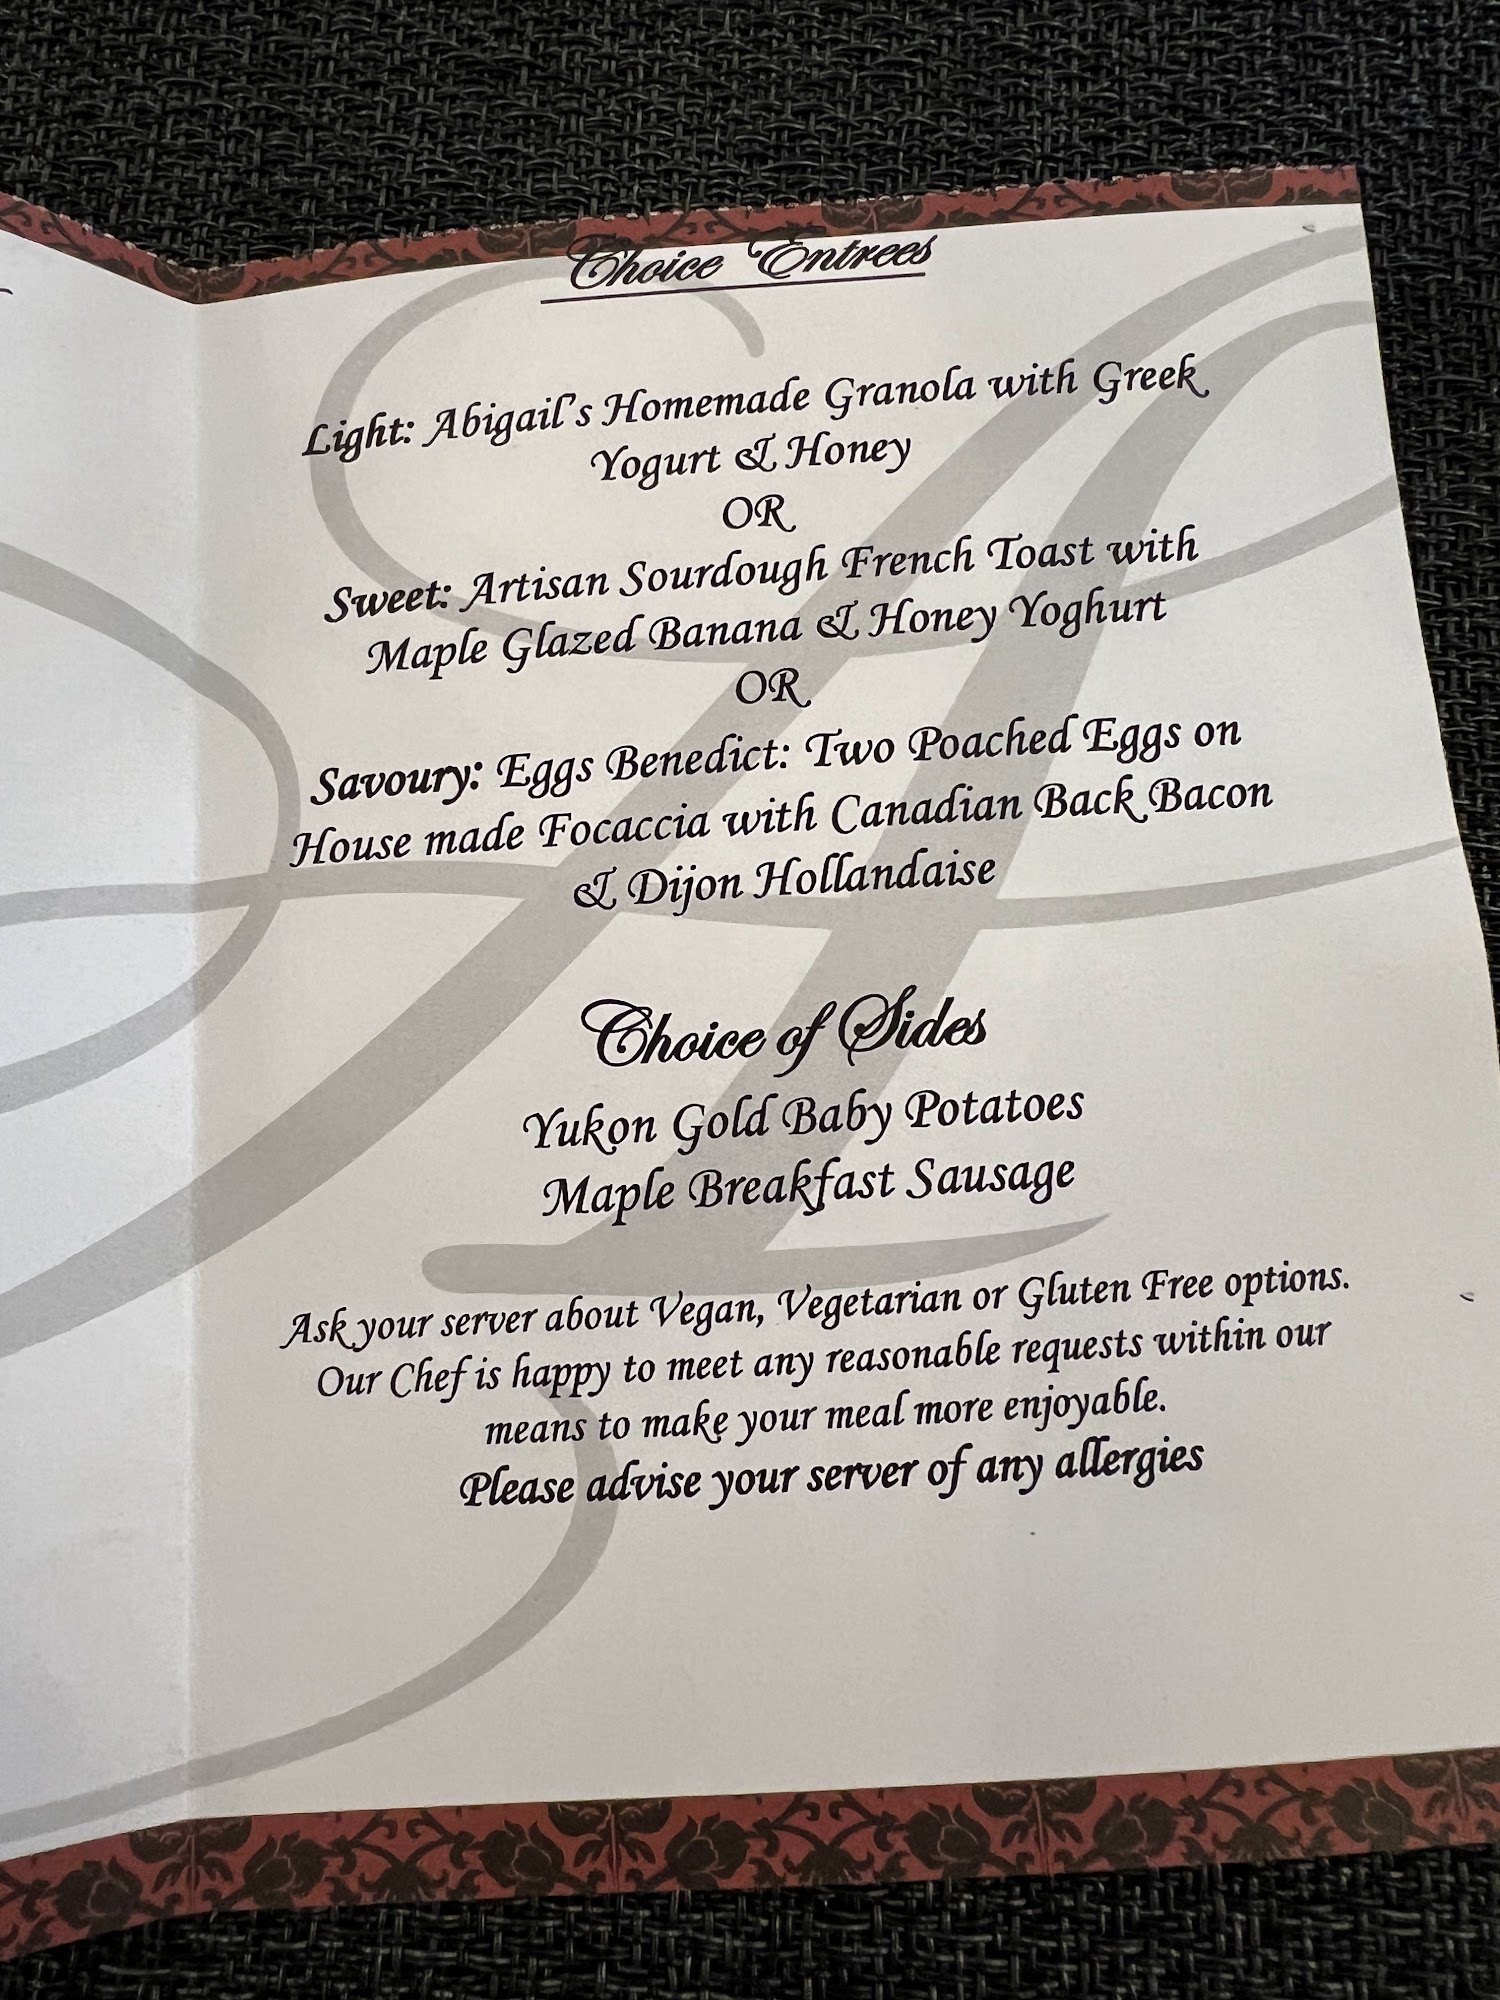 Choice Entrees
Light: Abigail's Homemade Granola with Greek
Yogurt & Honey
OR
Sweet: Artisan Sourdough French Toast with
Maple Glazed Banana & Honey Yoghurt
OR
Savoury: Eggs Benedict: Two Poached Eggs on
House made Focaccia with Canadian Back Bacon
& Dijon Hollandaise
Choice of Sides
Yukon Gold Baby Potatoes
Maple Breakfast Sausage
Ask your server about Vegan, Vegetarian or Gluten Free options.
Our Chef is happy to meet any reasonable requests within our
means to make your meal more enjoyable.
Please advise your server of any allergies